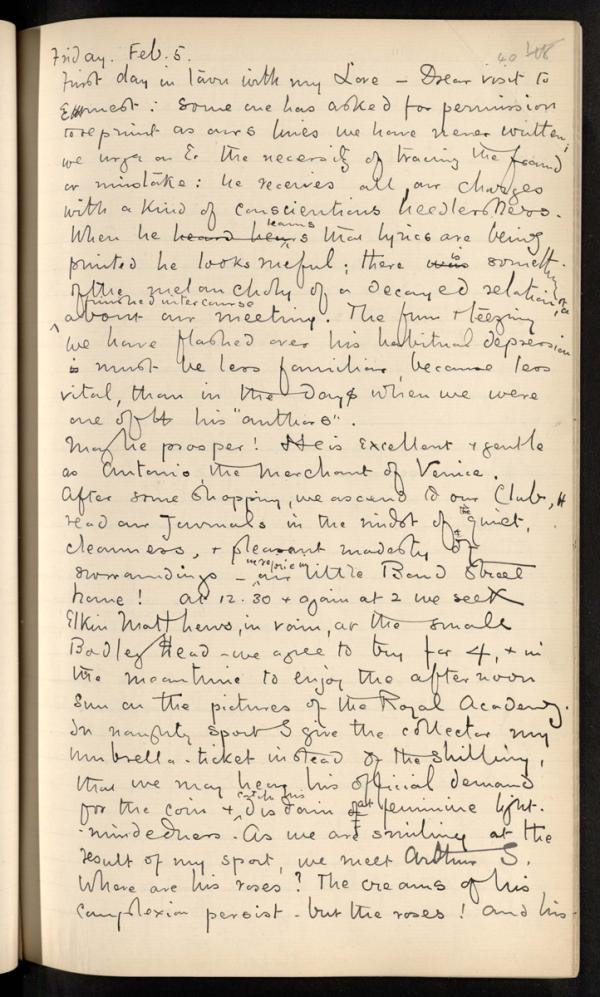 Friday. Feb. 5. 40
First day in town with my Love – Drear visit to
Ernest: Some one has asked for permission
to reprint as ours lines we have never written;
we urge on E. the necessity of tracing the fraud
or mistake: he receives all our charges
with a kind of conscientious heedlessness.
When he heard hears learns that lyrics are being
printed he looks rueful; there was is something
of the melancholy of a decayed relation, or a
finished intercourse
about our meeting. The fun & teezing
we have flashed over his habitual depression
is must be less familiar, because less
vital, than in the days when we were
one of his "authors".
May he prosper! He is excellent & gentle
as Antonio, the Merchant of Venice.
After some shopping, we ascend to our Club,
read our Journals in the midst of the quiet,
cleanness, & pleasant modesty of
surroundings – we rejoice in our little Bond Street
home! At 12.30 & again at 2 we seek
Elkin Matthews, in vain, at the small
Bodley Head – we agree to try for 4, & in
the meantime to enjoy the afternoon
sun on the pictures of the Royal Academy.
In naughty sport I give the collector my
umbrella-ticket instead of the shilling,
that we may hear his official demand
for the coin & catch his disdain at feminine light-
-mindedness. As we are smiling at the
result of my sport, we meet Arthur S.
Where are his roses? The creams of his
complexion persist – but the roses! And his